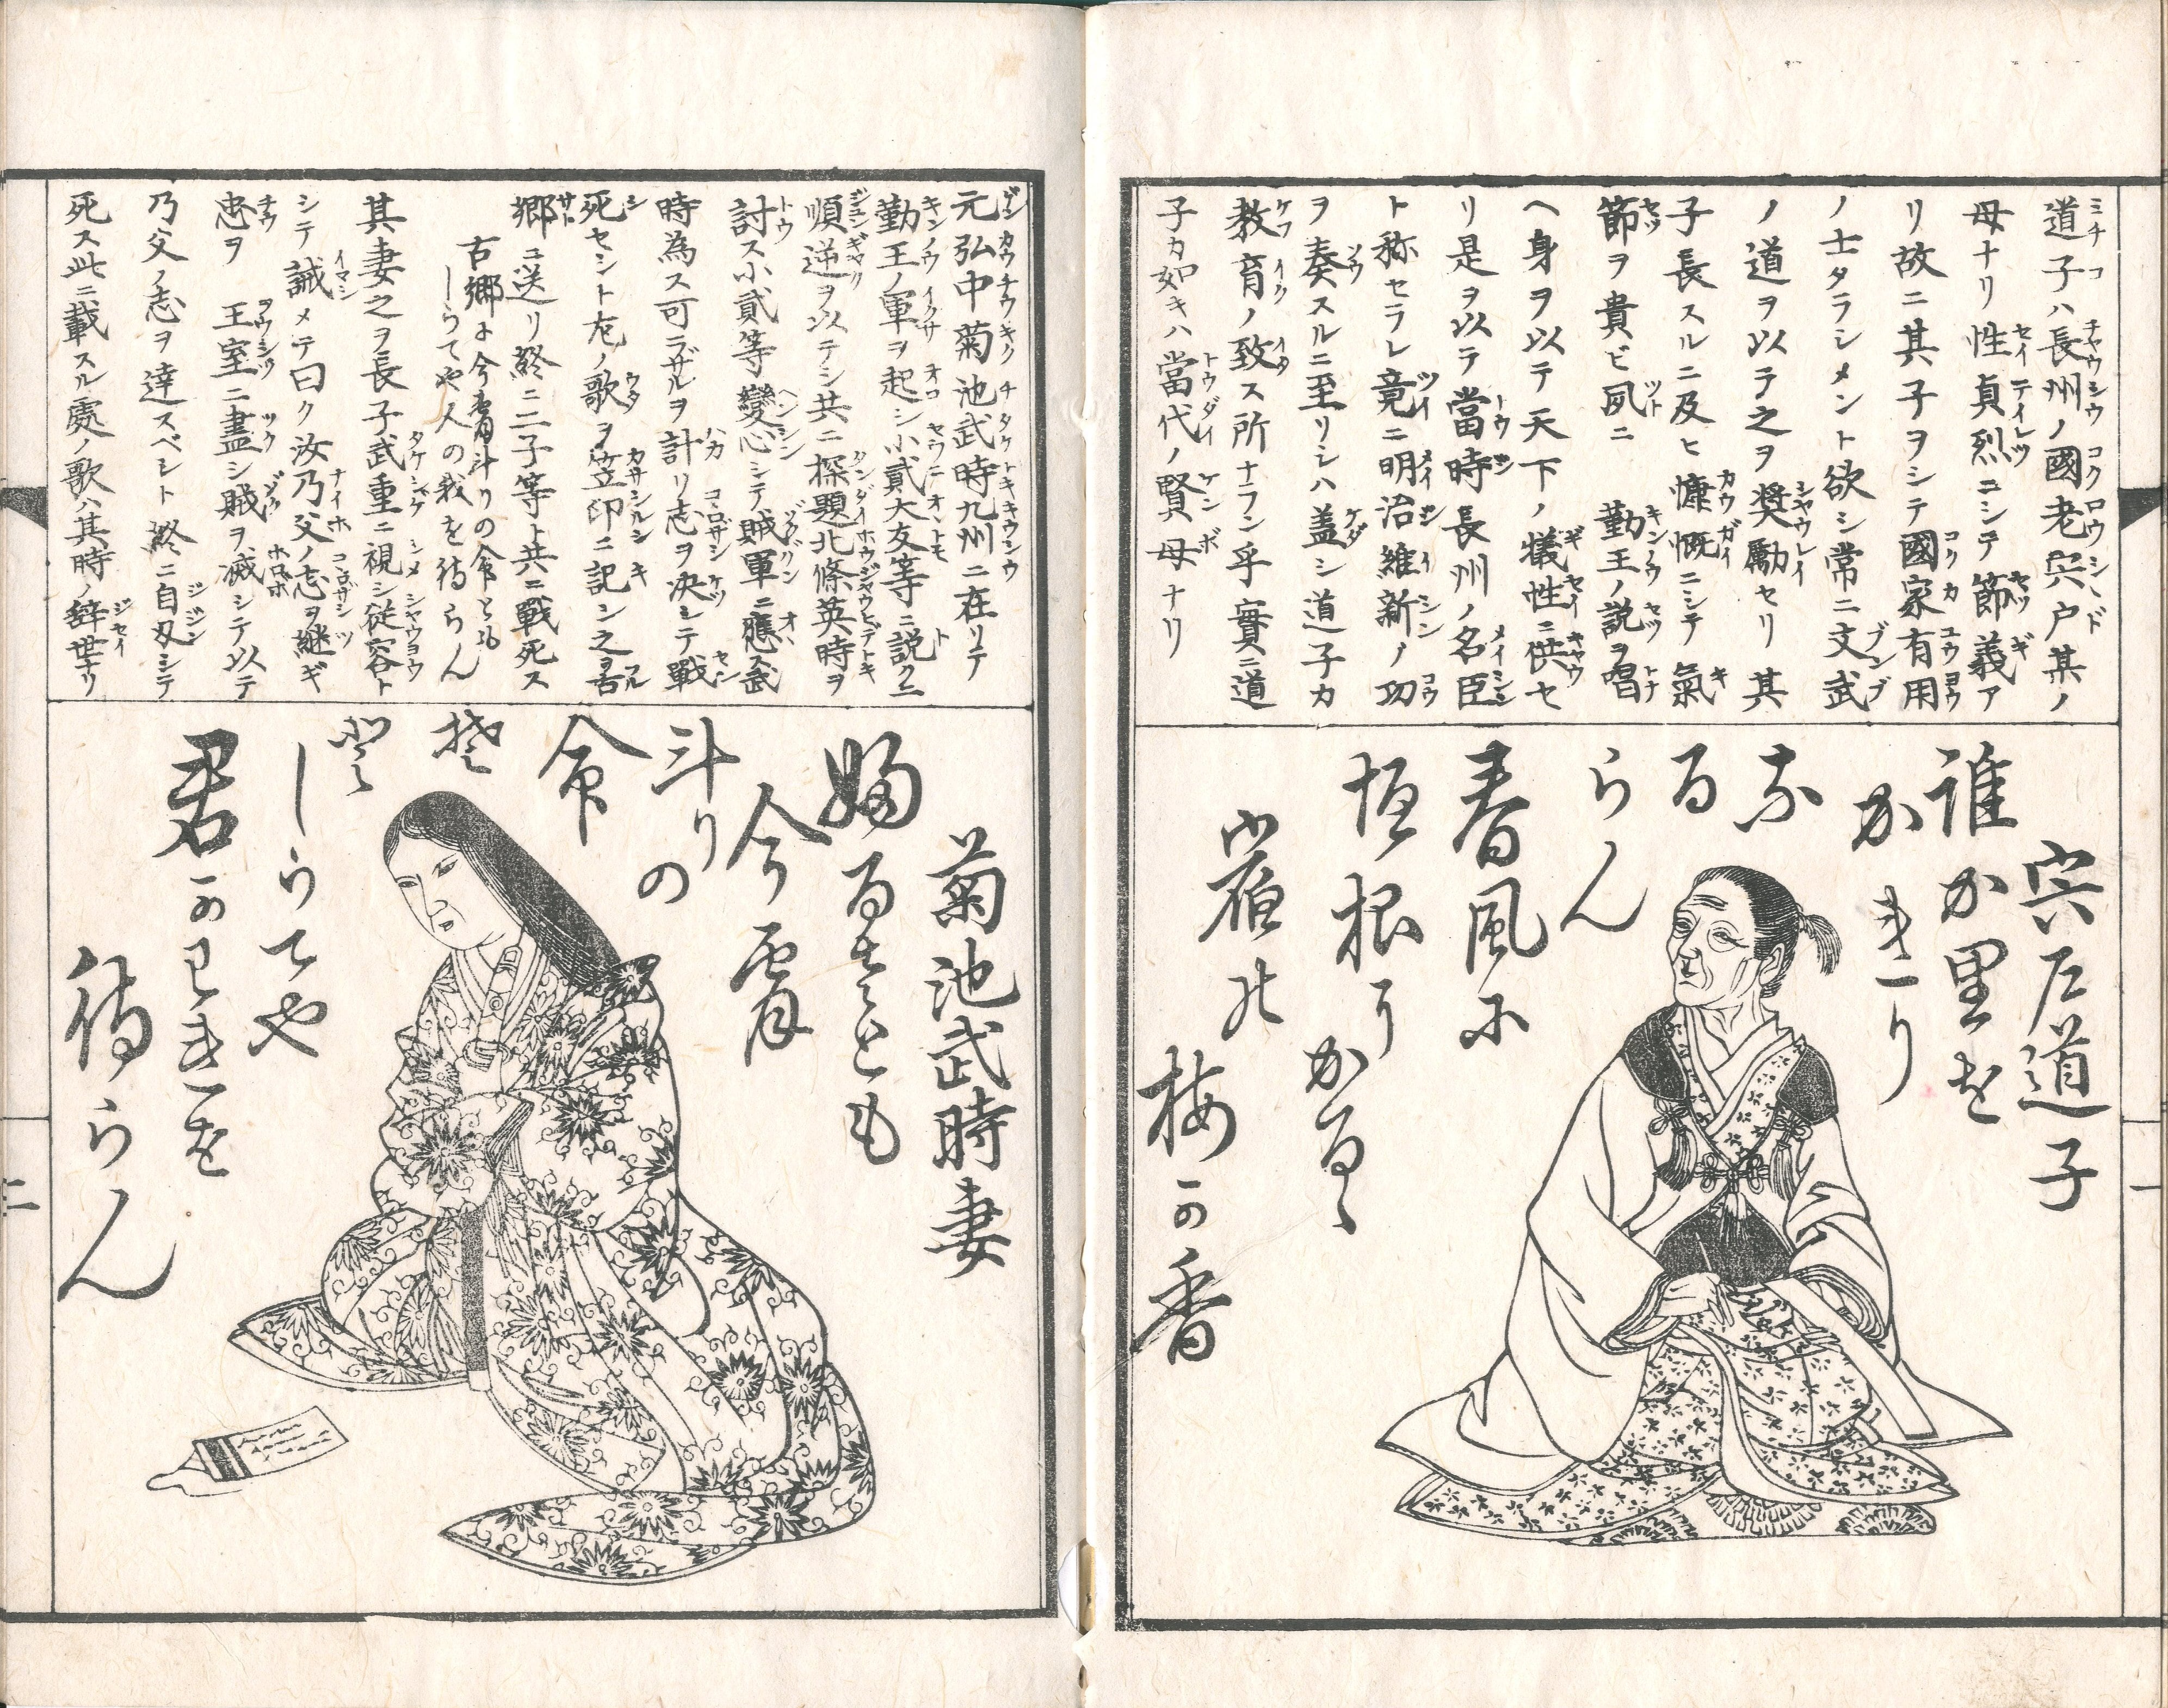 道子ハ長州ノ國老宍戸某ノ
母ナリ性貞烈ニシテ節義ア
リ故ニ其子ヲシテ國家有用
ノ士タラシメント欲シ常ニ文武
ノ道ヲ以テ之ヲ奨勵セリ其
子長スルニ及ヒ慷慨ニシテ氣
節ヲ貴ビ夙ニ 勤王ノ説ヲ唱
ヘ身ヲ以テ天下ノ犠牲ニ供セ
リ是ヲ以テ當時長州ノ名臣
ト称セラレ竟ニ明治維新ノ功
ヲ奏スルニ至リシハ蓋シ道子カ
教育ノ致ス所ナラン乎實ニ道
子カ如キハ當代ノ賢母ナリ
宍戸道子
誰か里を
かきり
な
る
らん
春風に
垣根り
かるゝ
宿の
梅の香
一
元弘中菊池武時九州ニ在リテ
勤王ノ軍ヲ起シ小貳大友等ニ説クニ
順逆ヲ以テシ共ニ探題北條英時ヲ
討ス小貳等變心シテ賊軍ニ應ス武
時為ス可ラザルヲ計リ志ヲ决シテ戰
死セント左ノ歌ヲ笠印ニ記シ之ヲ古
郷ニ送リ終ニ二子等ト共ニ戰死ス
古郷よ今宵斗りの命とも
しらてや人の我を待らん
其妻之ヲ長子武重ニ視シ従容ト
シテ誡メテ曰ク汝乃父ノ志ヲ継ギ
忠ヲ 王室ニ盡シ賊ヲ滅シテ以テ
乃父ノ志ヲ達スベシト終ニ自刄シテ
死ス此ニ載スル處ノ歌ハ其時ノ辞世ナリ
菊池武時妻
婦るさとも
今宵
斗りの
命
しらてや
君の
を
待らん
二